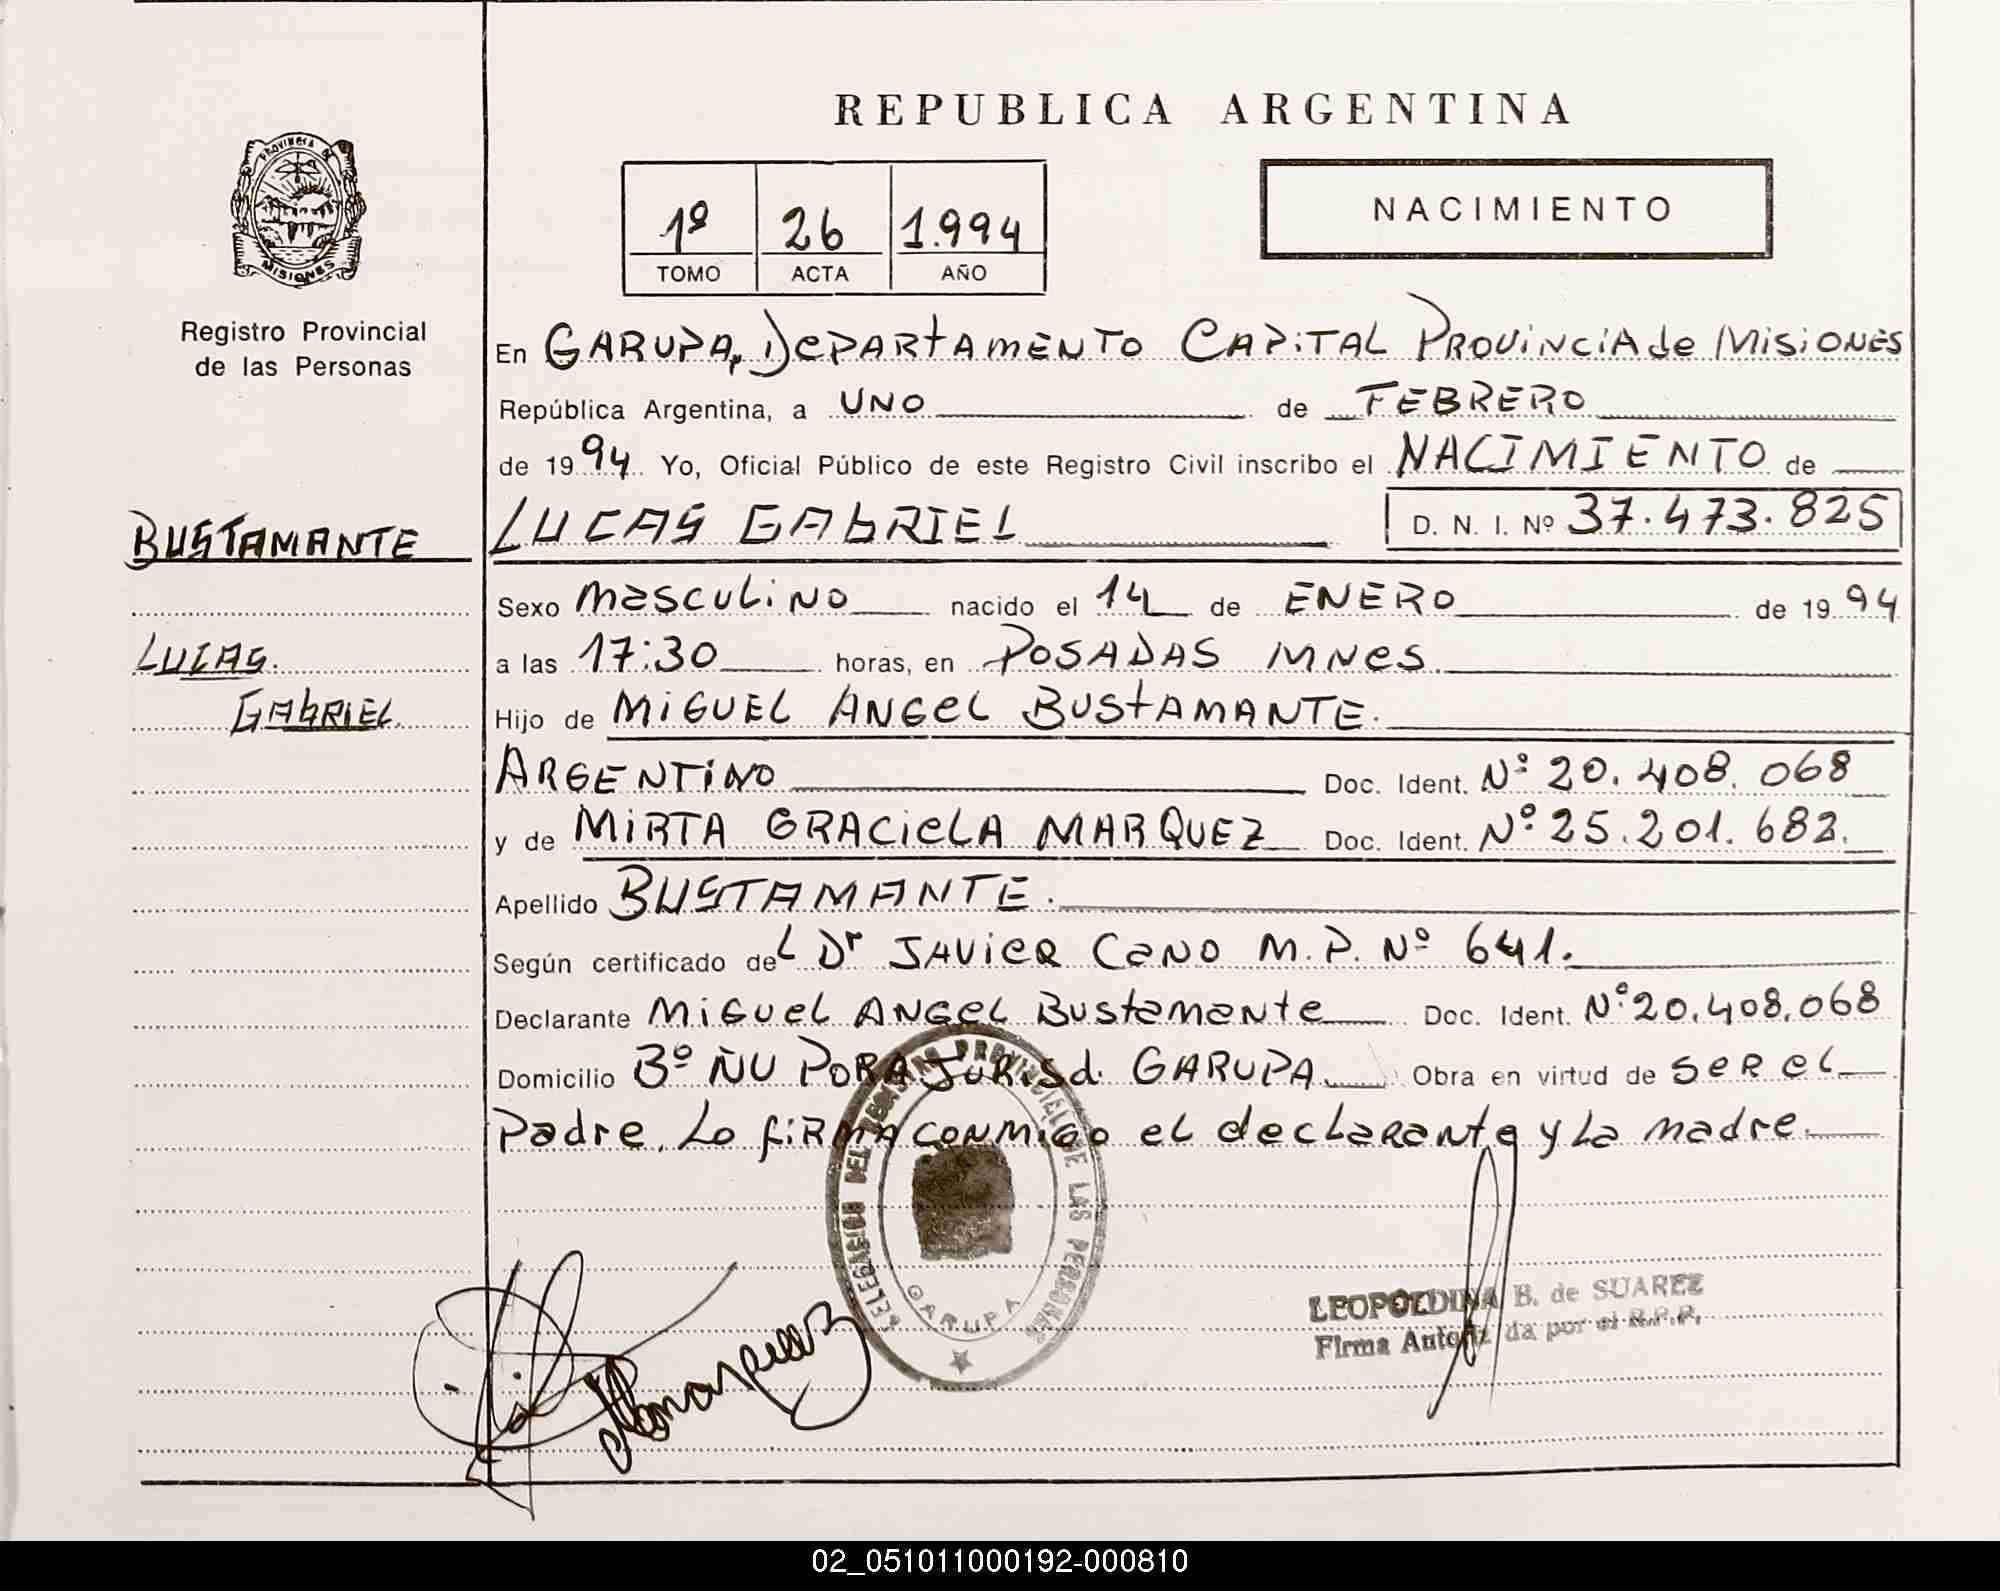 REPUBLICA ARGENTINA
PROVINCIA DE
MISIONES
Registro Provincial
de las Personas
1º 26 1.994
TOMO ACTA AÑO
NACIMIENTO
En GARUPA, DEPARtAMENTO CAPITAL PROVINCIA de MISIONES
República Argentina, a UNO de FEBRERO
de 1994 Yo, Oficial Público de este Registro Civil inscribo el NACIMIENTO de
BUSTAMANTE LUCAS GAbRIEL D. N. I. Nº 37.473.825
Sexo masculino nacido el 14 de ENERO de 1994
LUCAS a las 17:30 horas, en POSADAS MNES.
GAbRIEL Hijo de MIGUEL ANGEL BUStAMANTE.
ARGENTINO Doc. Ident. Nº 20.408.068
y de MIRTA GRACIELA MARQUEZ Doc. Ident. Nº 25.201.682.
Apellido BUSTAMANTE.
Según certificado del Dr JAVIER CANO M.P. Nº 641.
Declarante MIGUEL ANGEL Bustamante Doc. Ident. Nº 20.408.068
Domicilio Bº ÑU PORA JURISd. GARUPA. Obra en virtud de SER EL
Padre. Lo fiRMA CONMIGO el declarante y La madre.
DELEGACION DEL REGISTRO PROVINCIAL DE LAS PERSONAS
GARUPA
LEOPOLDINA B. de SUAREZ
Firma Autorizada por el R.P.P.
02_051011000192-000810